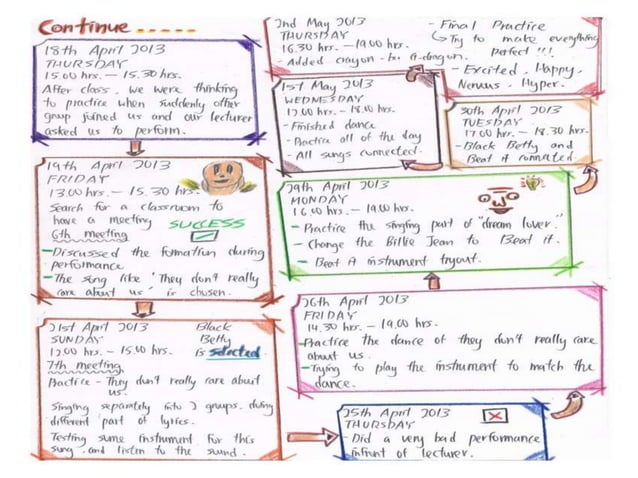 Continue .....
18th April 2013
THURSDAY
15.00 hrs. – 15.30 hrs.
After class, we were thinking
to practice when suddenly other
group joined us and our lecturer
asked us to perform.
19th April 2013
FRIDAY
13.00 hrs. – 15.30 hrs.
Search for a classroom to
have a meeting SUCCESS
6th meeting
- Discussed the formation during
performance
- The song like 'They don't really
care about us' is chosen.
21st April 2013
SUNDAY
12.00 hrs. – 15.00 hrs.
Black
Betty
is selected.
7th meeting
Practice – They don't really care about
us.
Singing separately into 2 groups, doing
different part of lyrics.
Testing some instrument for this
song and listen to the sound.
25th April 2013
THURSDAY
- Did a very bad performance
infront of lecturer.
26th April 2013
FRIDAY
14.30 hrs. – 19.00 hrs.
- Practice the dance of they don't really care
about us.
- Trying to play the instrument to match the
dance.
29th April 2013
MONDAY
16.00 hrs. – 19.00 hrs.
- Practice the singing part of "dream lover."
- Change the Billie Jean to Beat it.
- Beat it instrument tryout.
30th April 2013
TUESDAY
17.00 hrs. – 18.30 hrs.
- Black Betty and
Beat it connected.
1st May 2013
WEDNESDAY
12.00 hrs. – 18.00 hrs.
- Finished dance
- Practice all of the day
- All songs connected.
2nd May 2013
THURSDAY
16.30 hrs. – 19.00 hrs.
- Added crayon
- Final Practice
Try to make everything
perfect !!!
- Excited, Happy,
Nervous, Hyper.